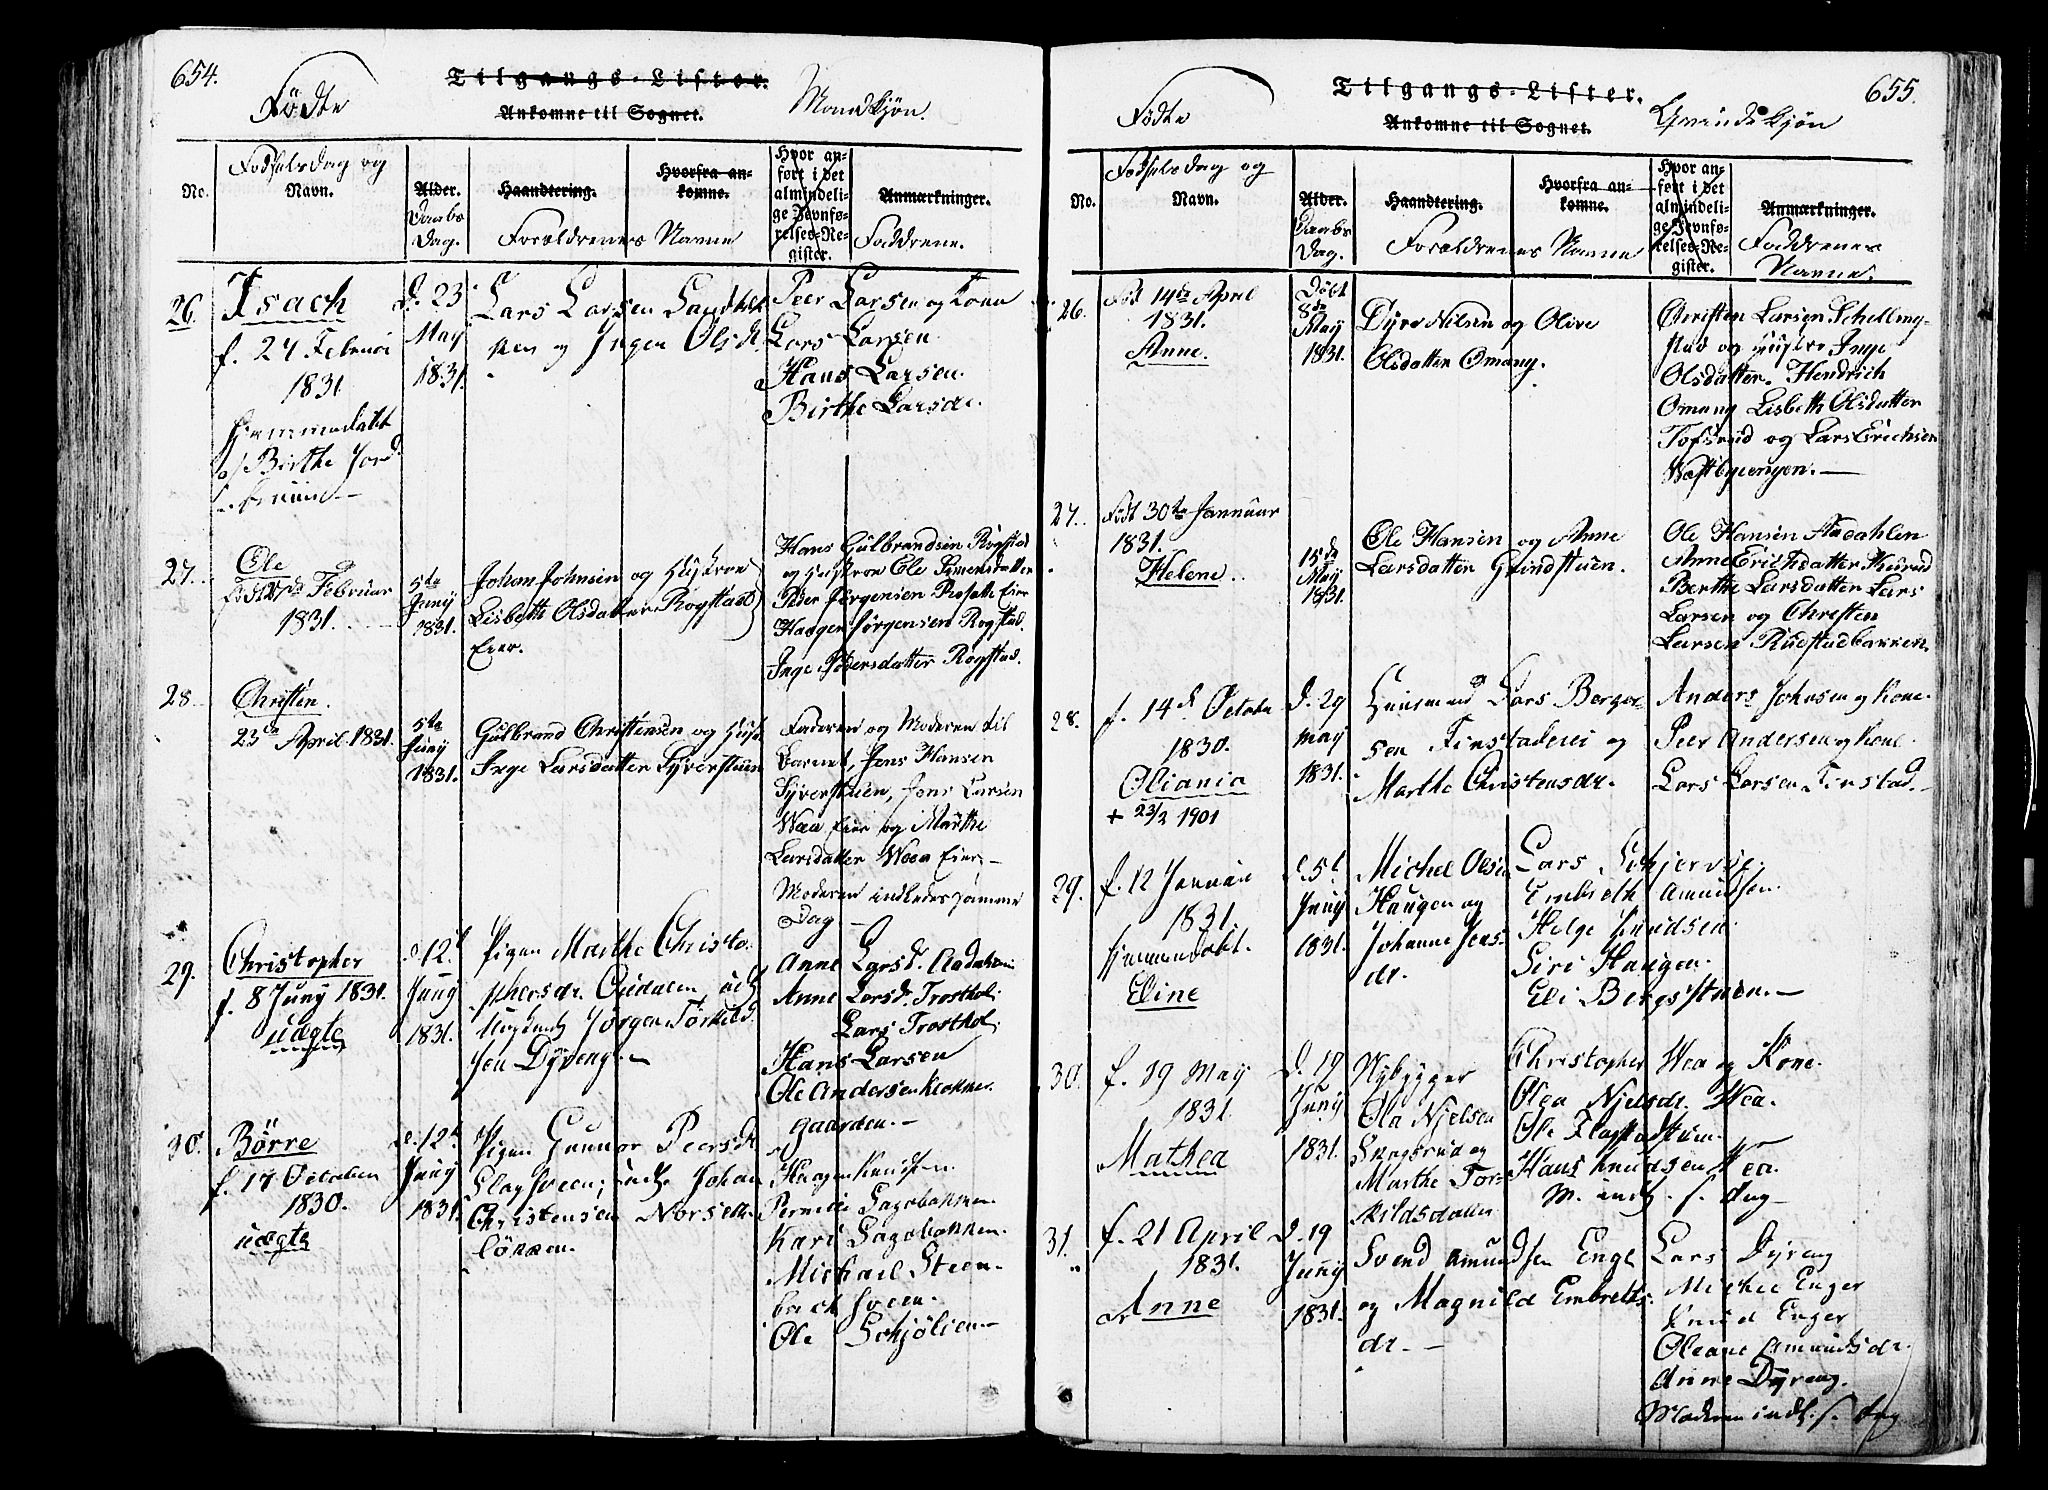 654.
Fødte
Tilgangs-Lister.
Ankomne til Sognet.
Mandkjøn.
No.
Fødselsdag og
Navn.
Alder.
Daabs
Dag.
Haandtering.
Hvorfra an-
komne.
Forældrenes Navne
Hvor an-
ført i det
almindeli-
ge Jevnfø-
relses-Re-
gister.
Anmærkninger.
Faddrene.
26.
Isach
f. 24 Februari
1831
hjemmedøbt
af Birthe
D. 23
May
1831.
Lars Larsen
og Inger Olsd.
Peer Larsen og Kone
Lars Larsen
Hans Larsen.
Birthe Larsdr.
27.
Ole
Februar
1831.
5te
Juny
1831.
Johan Johnsen og Hustroe
Lisbeth Olsdatter Rogstad
Eier.
Hans Gulbrandsen Rogstad
og Hustroe Ole Simensdatter
Peder Jørgensen Eier
Haagen Jørgensen Rogstad.
Inge Pedersdatter Rogstad.
28.
Christen.
23de April 1831.
5te
Juny
1831.
Gulbrand Christensen og
Inge Larsdatter Syverstuen
Faderen og Moderen til
Barnet, Jens Hansen
Syverstuen, Jens Larsen
Wæa Eier og Marthe
Larsdatter Woea Eier,
Moderen indledes samme
Dag
29.
Christopher
f. 8 Juny 1831.
uægte
D. 12t
Juny
1831.
Pigen Marthe Christo-
phersdr. Oudalen,
Jørgen Torkild-
sen Dyreng.
Anne Larsd.
Anne Larsd. Trosthol.
Lars Trosthol.
Hans Larsen
Ole Andersen Klokker-
gaarden.
30.
Børre
f. 17 October
1830.
uægte
D. 12t
Juny
1831.
Pigen Gunnor Peersdr.
Johan
Christensen
Haagen Knudsen.
Pernille Hagabakken.
Kari Hagabakken.
Michael Steen-
Ole Schjølien
655.
Fødte
Tilgangs-Lister.
Ankomne til Sognet.
Qvindekjøn
No.
Fødselsdag og
Navn.
Alder.
Daabs
Dag.
Haandtering.
Hvorfra an-
komne.
Forældrenes Navne
Hvor an-
ført i det
almindeli-
ge Jevnfø-
relses-Re-
gister.
Anmærkninger.
Faddrenes
Navne.
26.
Født 14de April
1831.
Anne.
Døbt
8de
May
1831.
Dyre Nilsen og Olive
Olsdatter Omang.
Christen Larsen Schelling-
stad og Hustroe Inge
Olsdatter. Hendrich
Omang Lisbeth Olsdatter
Tofsrud og Lars Erichsen
27.
Født 30te Januar
1831.
Helene.
15de
May
1831.
Ole Hansen og Anne
Larsdatter Grindstuen.
Ole Hansen Aadahlen
Anne Erichsdatter
Berthe Larsdatter Lars
Larsen og Christen
Larsen Rustadbakken.
28.
f. 14d. October
1830.
Oliania
+ 23/2 1901
D. 29
May
1831.
Huusmand Lars Berger-
sen Finstadeiet og
Marthe Christensdr.
Anders Johnsen og Kone.
Peer Andersen og Kone.
Lars Larsen Finstad.
29.
f. 12 Januari
1831.
hjemmedøbt.
Eline
D. 5t
Juny
1831.
Michel Olsen
Haugen og
Johanne Jens-
dr.
Lars Schjervie.
Embreth Amundsen.
Helge Knudsen
Siri Haugen.
Eli Bergsstuen.
30.
f. 19 May
1831.
Mathea
D. 19
Juny
1831.
Nybygger
Ole Njelsen
Skogsrud og
Marthe Tor-
kildsdatter
Christopher Wea og Kone.
Olea Njelsdr. Wea.
Ole Flagstadstuen.
Hans Knudsen Wea.
M. indl. s. Dag
31.
f. 21 April
1831.
Anne
D. 19
Juny
1831.
Svend Amundsen Enge
og Magnild Embrets-
dr.
Lars Dyreng
Michel Enger
Knud Enger
Oleane Amundsdr.
Anne Dyreng.
Moderen indl. s. Dag